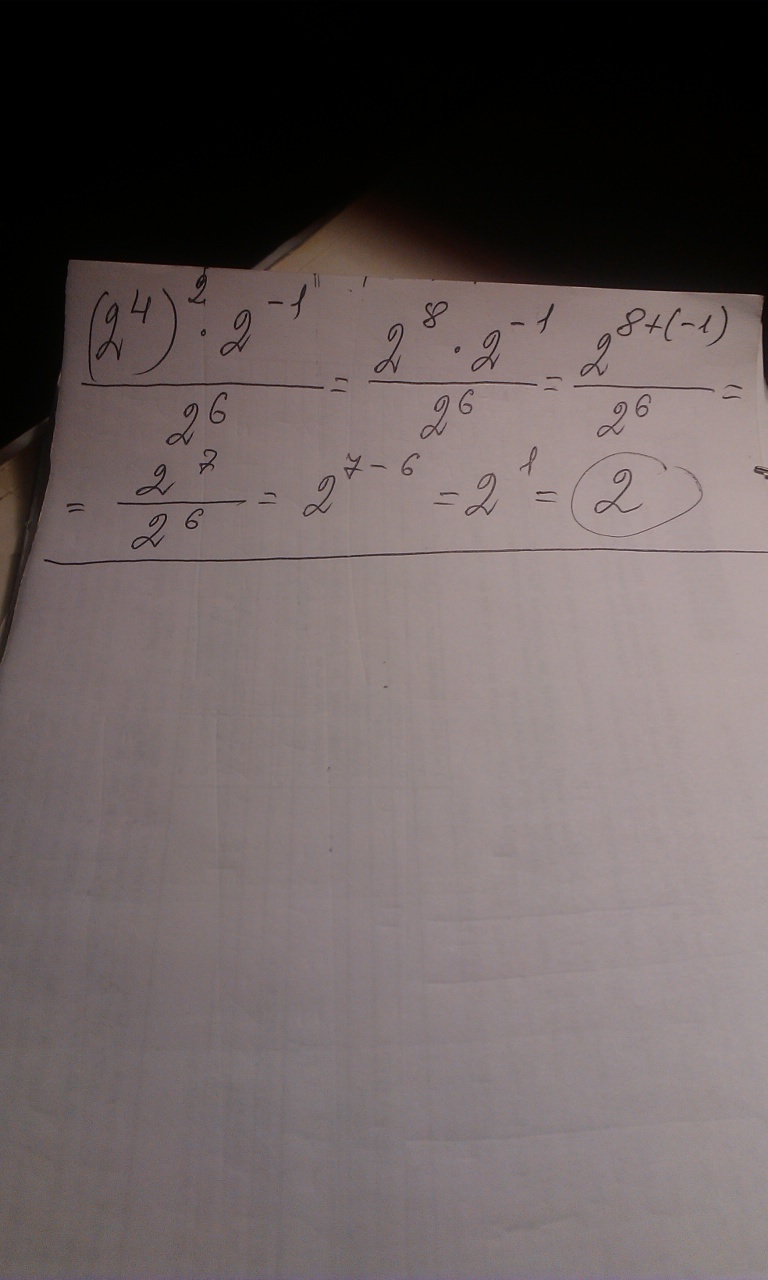 (2⁴)² · 2⁻¹ / 2⁶ = 2⁸ · 2⁻¹ / 2⁶ = 2⁸⁺⁽⁻¹⁾ / 2⁶ =
= 2⁷ / 2⁶ = 2⁷⁻⁶ = 2¹ = 2